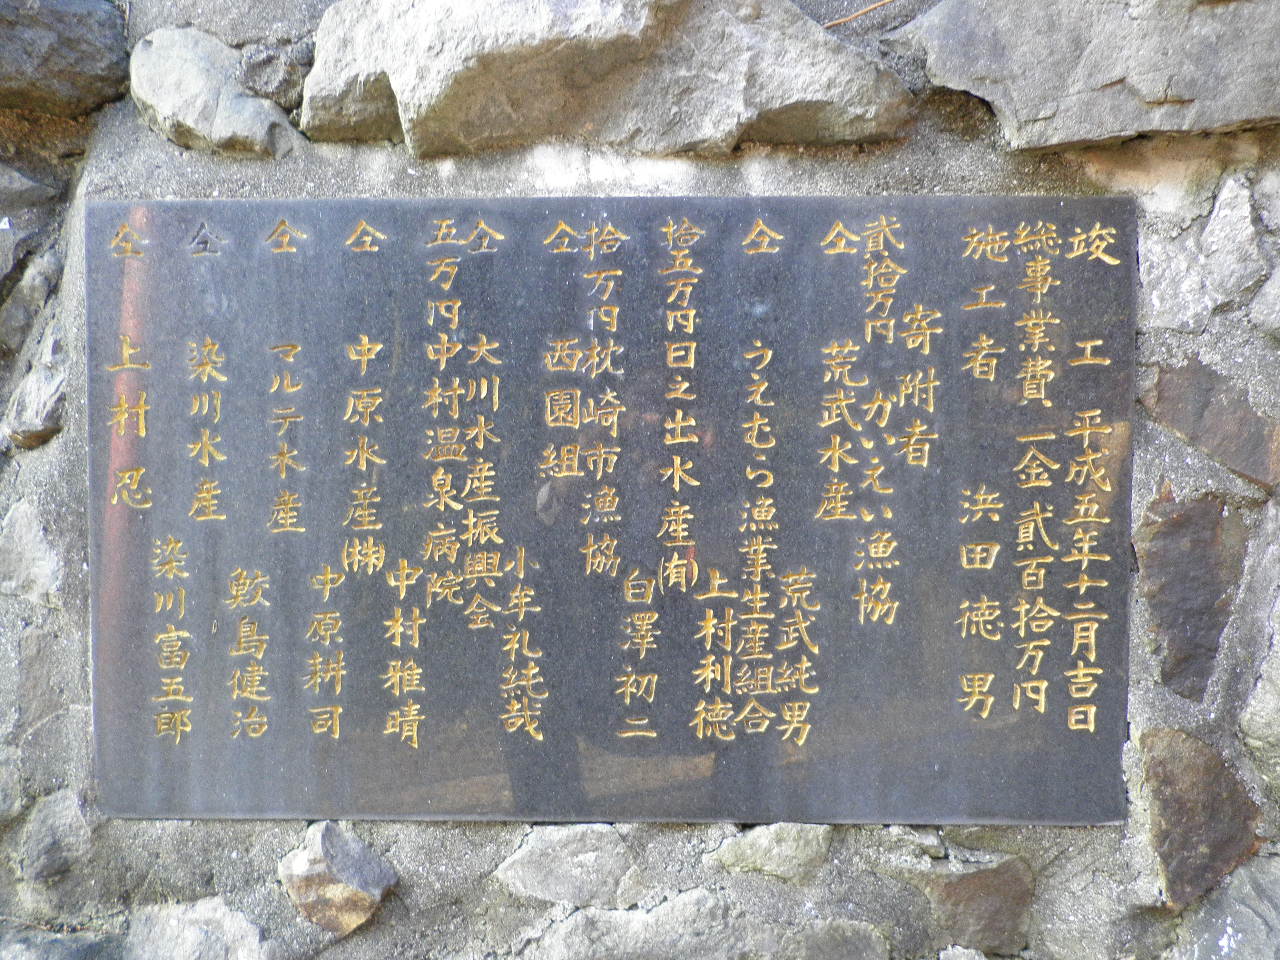 竣工 平成五年十二月吉日
総事業費 一金 貳百拾万円
施工者 浜田徳男
寄附者
貳拾万円 がいえい漁協
仝 荒武水産 荒武純男
仝 うえむら漁業生産組合 上村利徳
拾五万円 日之出水産(有) 白澤初二
拾万円 枕崎市漁協
仝 西園組 小牟礼純哉
仝 大川水産振興会
五万円 中村温泉病院 中村雅晴
仝 中原水産(株) 中原耕司
仝 マルテ水産 鮫島健治
仝 染川水産 染川富五郎
仝 上村忍